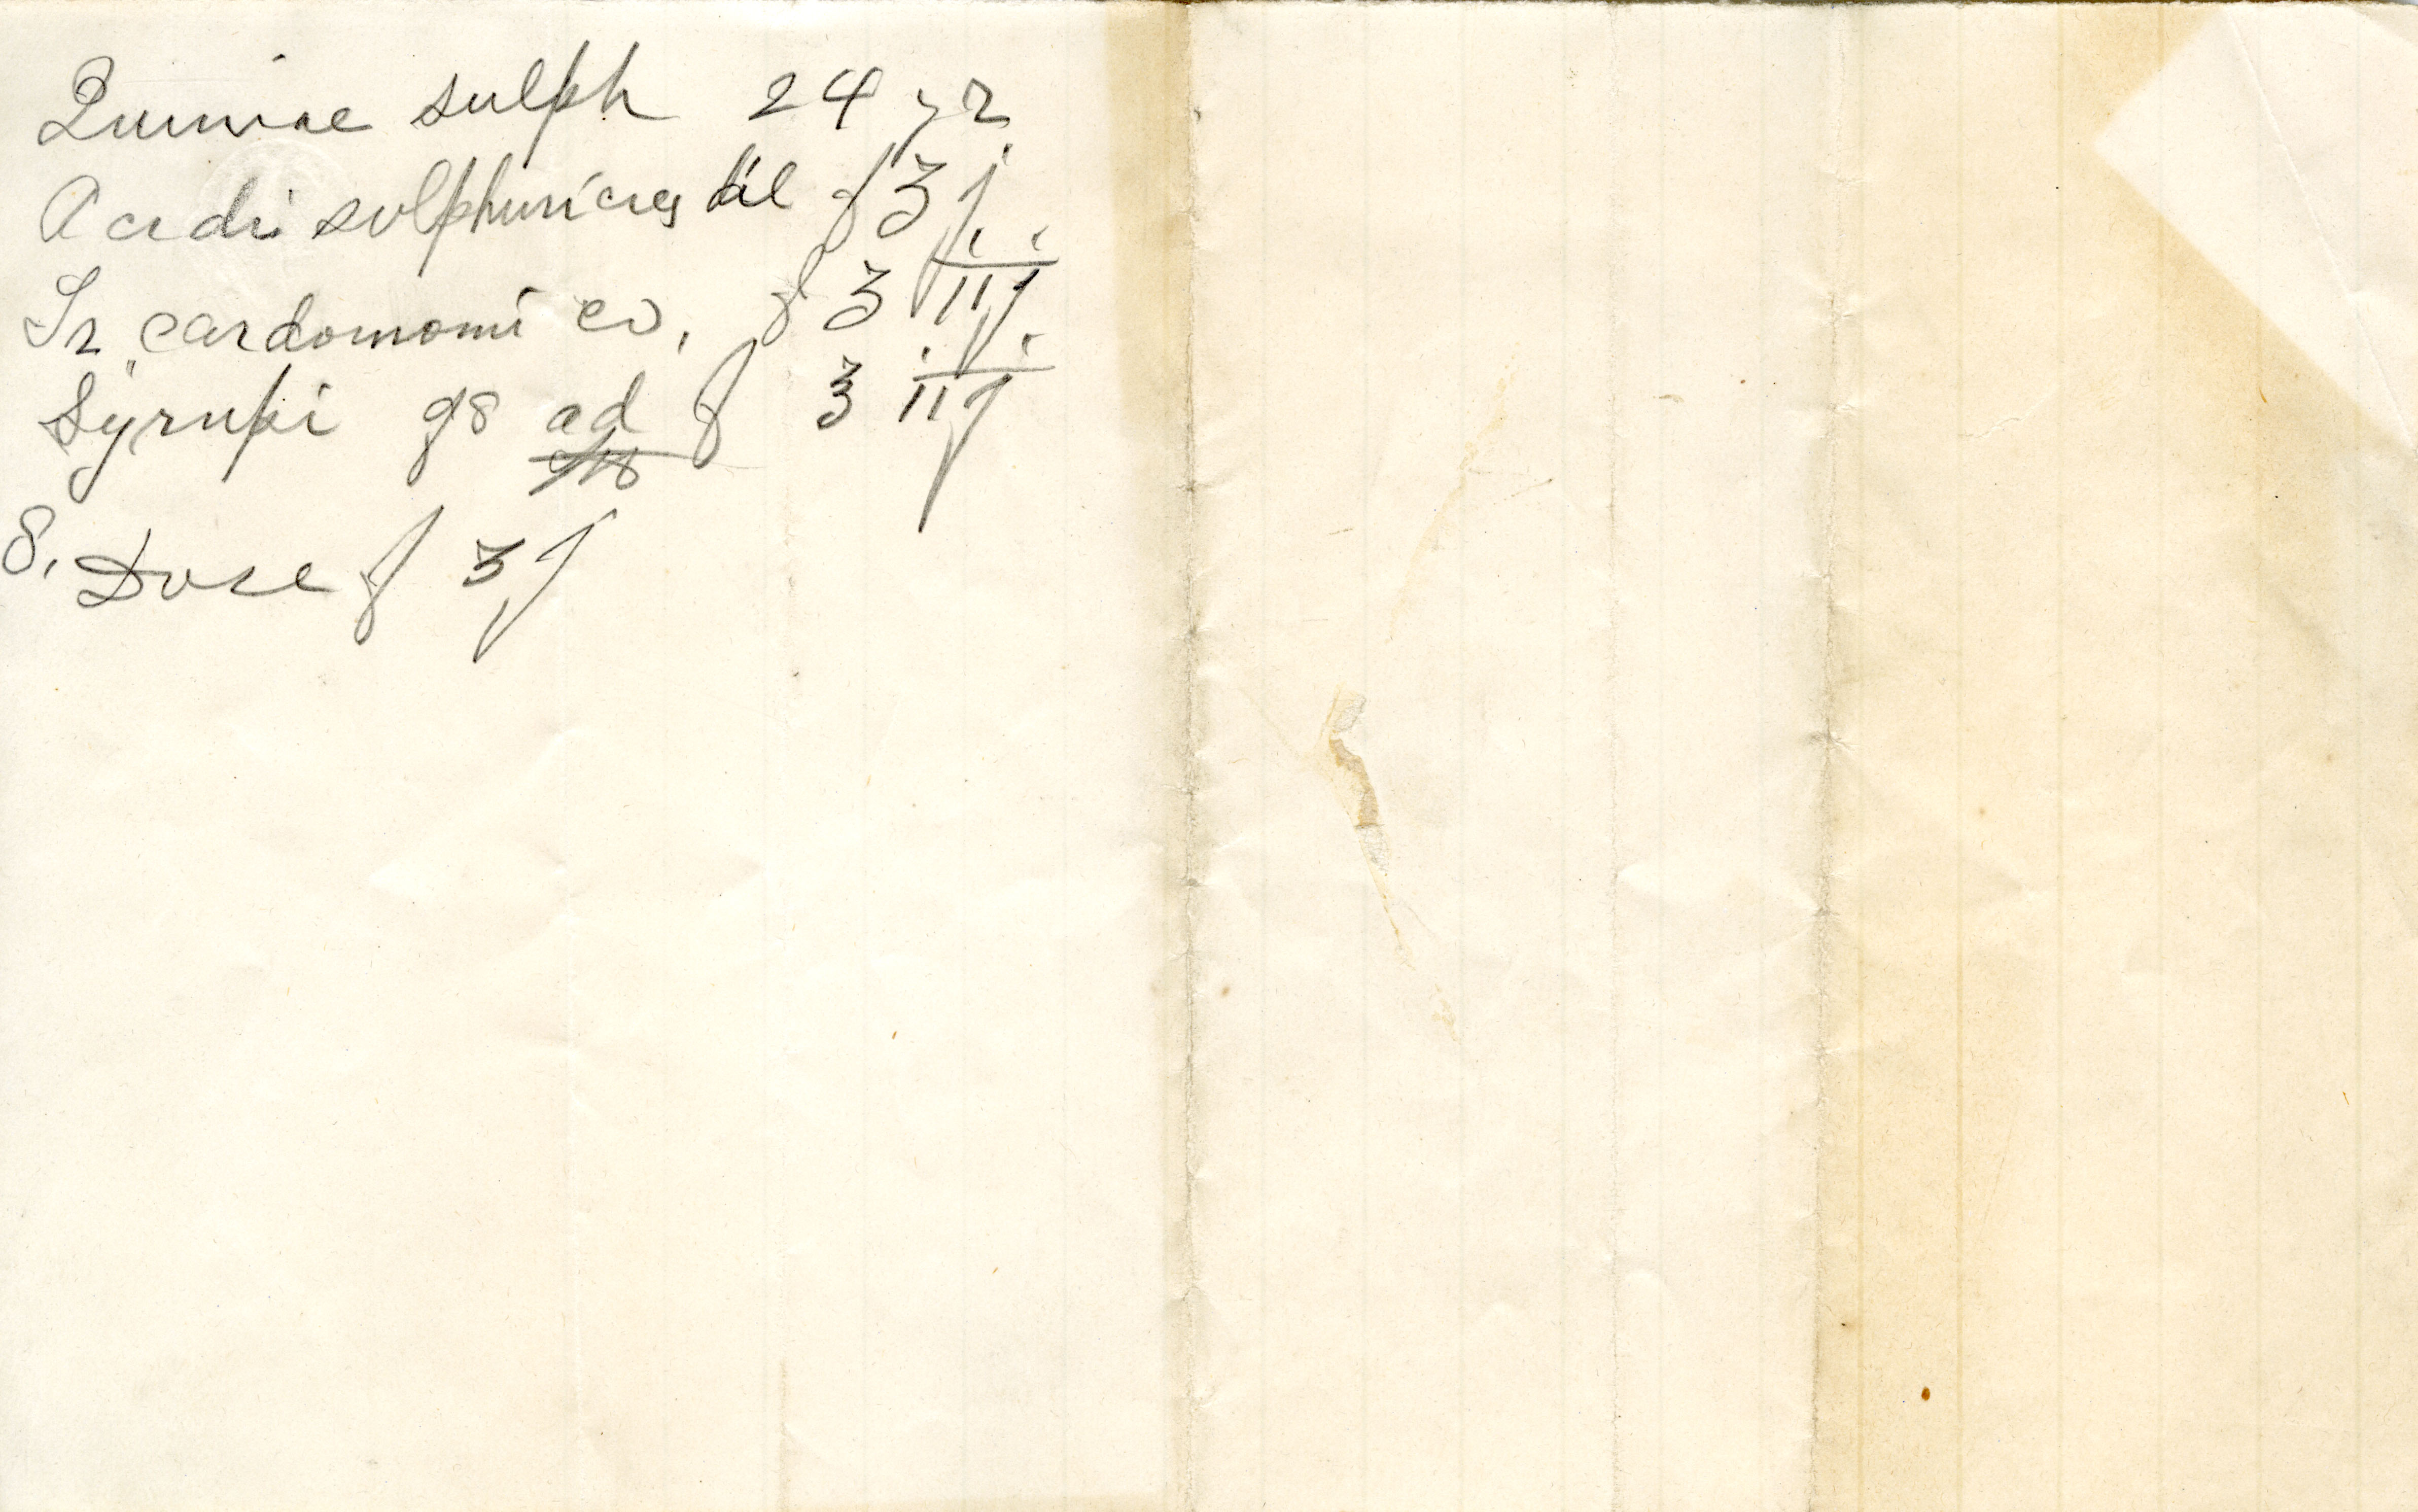 Quiniae sulph 24 gr
Acidi sulphurici dil fʒj
Tr cardomomi co. fʒ iij
Syrupi qs ad fʒ iij
S. Dose fʒj